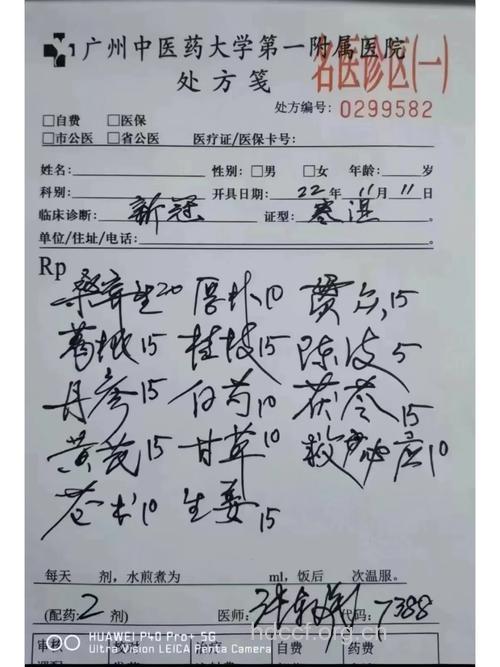 广州中医药大学第一附属医院
处方笺
名医诊区(一)
处方编号:0299582
□自费 □医保
□市公医 □省公医 医疗证/医保卡号:
姓名: 性别:□男 □女 年龄: 岁
科别: 开具日期:22年11月11日
临床诊断:新冠 证型:寒湿
单位/住址/电话:
Rp
桑寄生20 厚朴10 贯众15
葛根15 桂枝15 陈皮5
丹参15 白芍10 茯苓15
黄芪15 甘草10 救必应10
苍术10 生姜15
每天 剂,水煎煮为 ml,饭后 次温服。
(配药2剂) 医师: 代码:7388
HUAWEI P40 Pro+ 5G
Ultra Vision LEICA Penta Camera